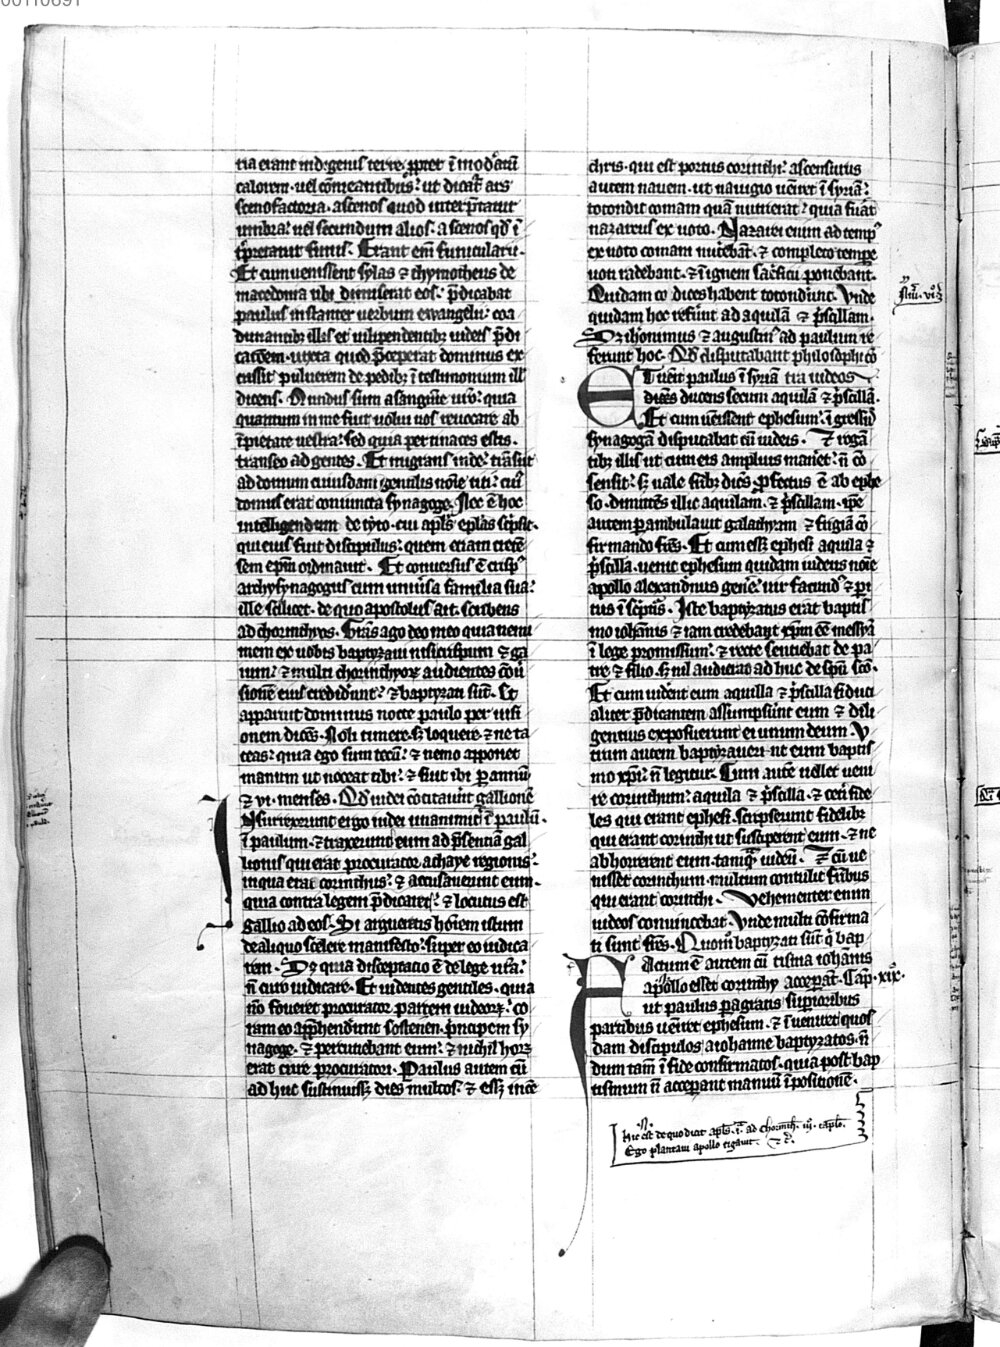 tia erant indigenis terre. ꝓpter ī mod̾atū
calorem. uel cōmeantibus. ut dicat᷑ ars
scenofactoria. a scenos quod interp̄tatur
umbra. uel secundum alios. a scenos qd̄ ī
t̾pretatur funis. Erant em̄ funicularii.
Et cum uenissent sylas ⁊ thymotheus de
macedonia ubi dimiserat eos. p̄dicabat
paulus instanter uerbum ewangelii. cōt
dicentibꝫ illis et uilipendentibꝫ iudeis p̄di
cacōem. iuxta quod p̄ceperat dominus ex
cussit puluerem de pedibꝫ ī testimonium ill̾
dicens. Mundus sum a sanguīe ur̄o. quia
quantum in me fuit uolui uos reuocare ab
īpietate uestra. sed quia pertinaces estis.
transeo ad gentes. Et migrans inde. trāsiit
ad domum cuiusdam gentilis nōīe titi. cui̾
domus erat coniuncta synagoge. Nec ē hoc
intelligendum de tyto. cui apl̄s epl̄as sc̾psit.
qui eius fuit discipulus. quem etiam creten̄
sem ep̄m ordinauit. Et conuersus ē crisp̾
archysynagogus cum uniu̾sa familia sua.
ille scilicet. de quo apostolus ait. scribens
ad chorinthyos. Grās ago deo meo quia nemi
nem ex uobis baptyzaui nisi crispum ⁊ ga
ium. ⁊ multi chorinthyoꝝ audientes cōu̾
sionē eius crediderūt. ⁊ baptyzati sūt. Et
apparuit dominus nocte paulo per uisi
onem dicēs. Noli timere. sꝫ loquere. ⁊ ne ta
ceas. quia ego sum tecū. ⁊ nemo apponet
manum ut noceat tibi. ⁊ fuit ibi ꝑ annū
⁊ vi. menses. Qd̄ iudei cōcitauerūt gallionē
Insurrexerunt ergo iudei unanimit̾ ī paulū.
ī paulum. ⁊ traxerunt eum ad p̄sentiā gal
lionis qui erat procurator achaye regionis.
in qua erat corinthus. ⁊ accusauerunt eum.
qua contra legem p̄dicaret. ⁊ locutus est
gallio ad eos. Si argueretis hōīem istum
de aliquo scelere manifesto. super eo iudica
rem. Sꝫ quia disceptacio ē de lege ur̄a.
n̄ curo iudicare. Et uidentes gentiles. quia
nō foueret procurator partem iudeoꝝ. co
ram eo app̾hendūt sostenen. p̄ncipem sy
nagoge. ⁊ percutiebant eum. ⁊ nichil hoꝝ
erat cure procuratori. Paulus autem cū
ad huc sustinuissꝫ dies multos. ⁊ essꝫ in cē
chris. qui est portus corinthi. ascensurus
autem nauem. ut nauigio uēiret ī syriā.
totondit comam quā nutrierat. quia fu̾at
nazareus ex uoto. Nazarei enim ad temp̾
ex uoto comam nut̾ebāt. ⁊ completo tempꝰe
uoti radebant. ⁊ ī ignem sac̾ficii ponebant.
Quidam co dices habent totond̾unt. Vnde
quidam hoc refūnt ad aquilā ⁊ p̾scillam.
Sꝫ ihonimus ⁊ augustin̾ ad paulum re
ferunt hoc. Qd̄ disputabant philosophi cō
ET uēit paulus ī syriā tra iudeos
dicēs ducens secum aquilā ⁊ p̾scillā.
Et cum uēissent ephesum. ī gressus
synagogā disputabat cū iudeis. ⁊ rogā
tibꝫ illis ut cum eis amplius manēt. n̄ cō
sensit. sꝫ uale fr̄ibꝫ dicēs ꝓfectus ē ab ephe
so. dimittēs illic aquilam. ⁊ p̾scillam. ip̄e
autem perambulauit galathyam ⁊ frigiā cō
firmando fr̄es. Et cum essꝫ ephesi aquila ⁊
p̾scilla. uenit ephesum quidam iudeus nōīe
apollo alexandrinus genē. uir facund̾ ⁊ pi
tus ī sc̾ptis. Iste baptyzatus erat baptis
mo iohānis ⁊ iam credebant xp̄m eē messyā
ī lege promissum. ⁊ recte sentiebat de pa
tre ⁊ filio. sꝫ nil audierat ad huc de sp̄u sc̄o.
Et cum uidēt eum aquilla ⁊ p̾scilla fiduci
aliter p̄dicantem assumpserūt eum ⁊ dili
gentius exposuerunt ei unum deum. V
trum autem baptyzauerint eum baptis
mo xp̄i. n̄ legitur. Cum autē uellet ueni
re corinthum. aquila ⁊ p̾scilla. ⁊ cet̾i fide
les qui erant ephesi. scripserunt fidelibꝫ
qui erant corinthi ut susciperent eum. ⁊ ne
abhorrerent eum. tanqꝫ iudeū. ⁊ cū ue
nisset corinthum. multum contulit fr̄ibus
qui erant corinthi. Vehementer enim
iudeos conuincebat. Vnde multi cōfirma
ti sunt fr̄es. Quom̄o baptyzati sūt q̾ bap
FActum ē autem cū tisma iohānis
apollo esset corinthy accepāt. Cap. xix.
ut paulus ꝑagratis sup̾ioribus
partibus uēiret ephesum. ⁊ īueniret quos
dam discipulos a iohanne baptyzatos. n̄
dum tam̄ ī fide confirmatos. quia post bap
tismum n̄ acceperant manuū īpositionē.
hic est de quo dicit apl̄s. ī. ad chorinth. iij. caplo.
Ego plantaui apollo rigauit. ⁊ c̄.